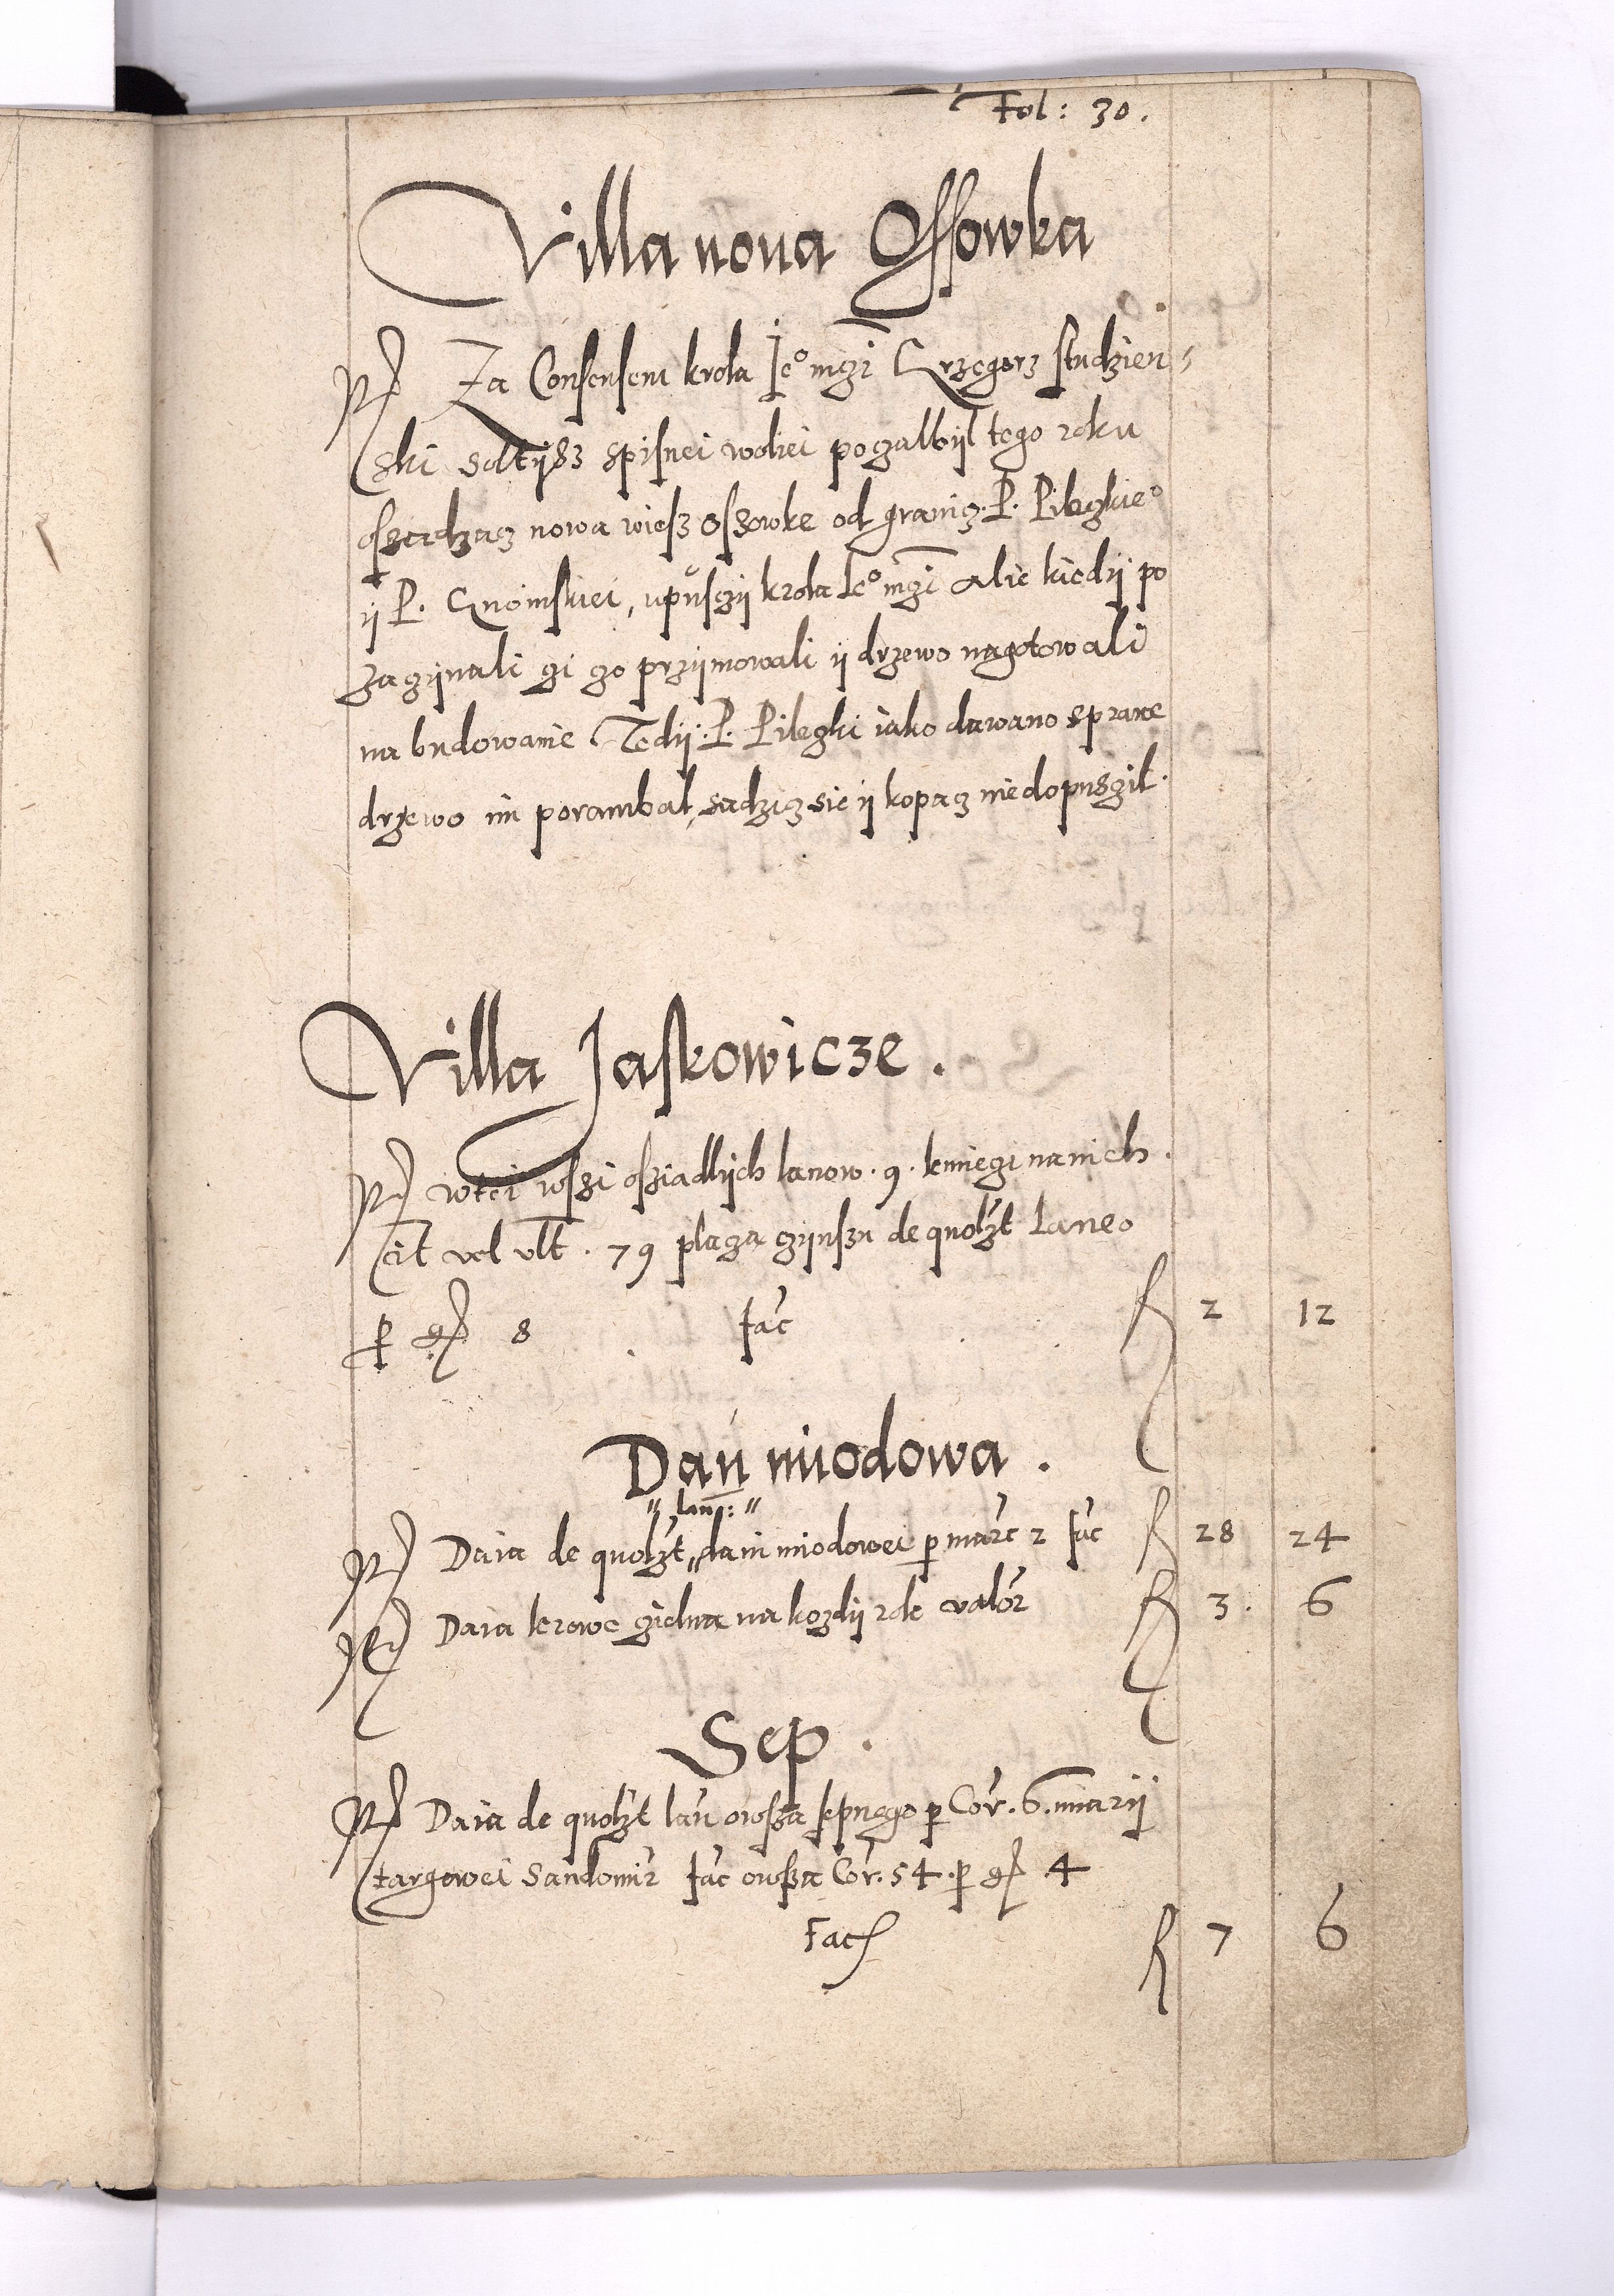 Fol: 30.
Villa nova Ossowka
Za Consensem krola Je° mgi Grzegorz studzien,
ski soltijsz spisnei woliei pogalbijl tego roku
oszadzacz nowa wiesz Ossowke od granicz. P. Pileczkie°
ij P. Gnoinskiei, upusczij krola Je° mgi Alie kiedij po
zaczijnali gi go przijmowali ij drzewo nagotowali
na budowanie Tedij. P. Pileczki iako dawano sprawe
drzewo im porambal, sadzicz sie ij kopacz niedopusczil.
Villa Jaskowicze.
wtei wsszi osziadlijch lanow. 9. kmieczi na nich.
cit vel ult. 79 placza czijnszu de quolzt Laneo
p gr 8 fac 2 12
Dan miodowa.
" lan: "
Daia de quolzt " dani miodowei p marc 2 fac 28 24
Daia krowe gidna na kozdij rok valor 3. 6
Sep.
Daia de quolzt lan owsza sepnego p Cor. 6. miarij
targowei Sandomir fac owsza Cor. 54. p gr 4
Fac 7 6